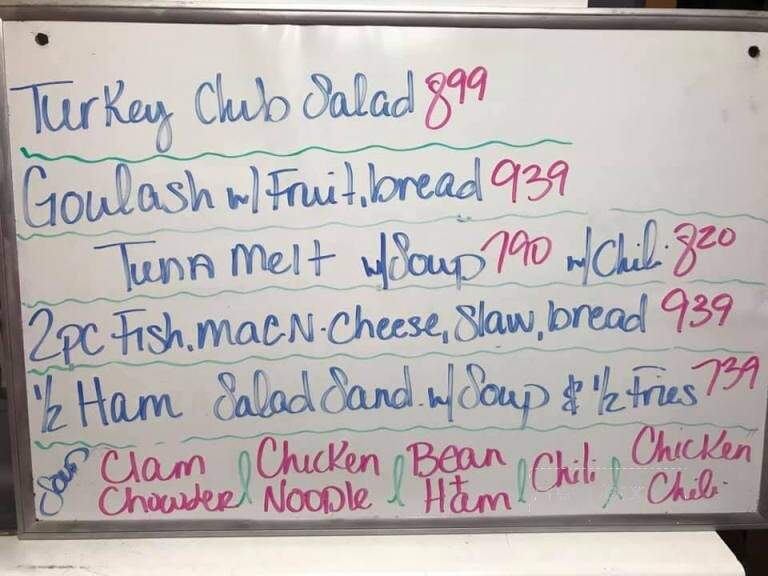 Turkey Club Salad 899
Goulash w/ Fruit, bread 939
Tuna Melt w/ Soup 790 w/ Chili 820
2pc Fish, Mac N. Cheese, Slaw, bread 939
1/2 Ham Salad Sand. w/ Soup & 1/2 Fries 739
Soup Clam Chowder Chicken Noodle Bean + Ham Chili Chicken Chili